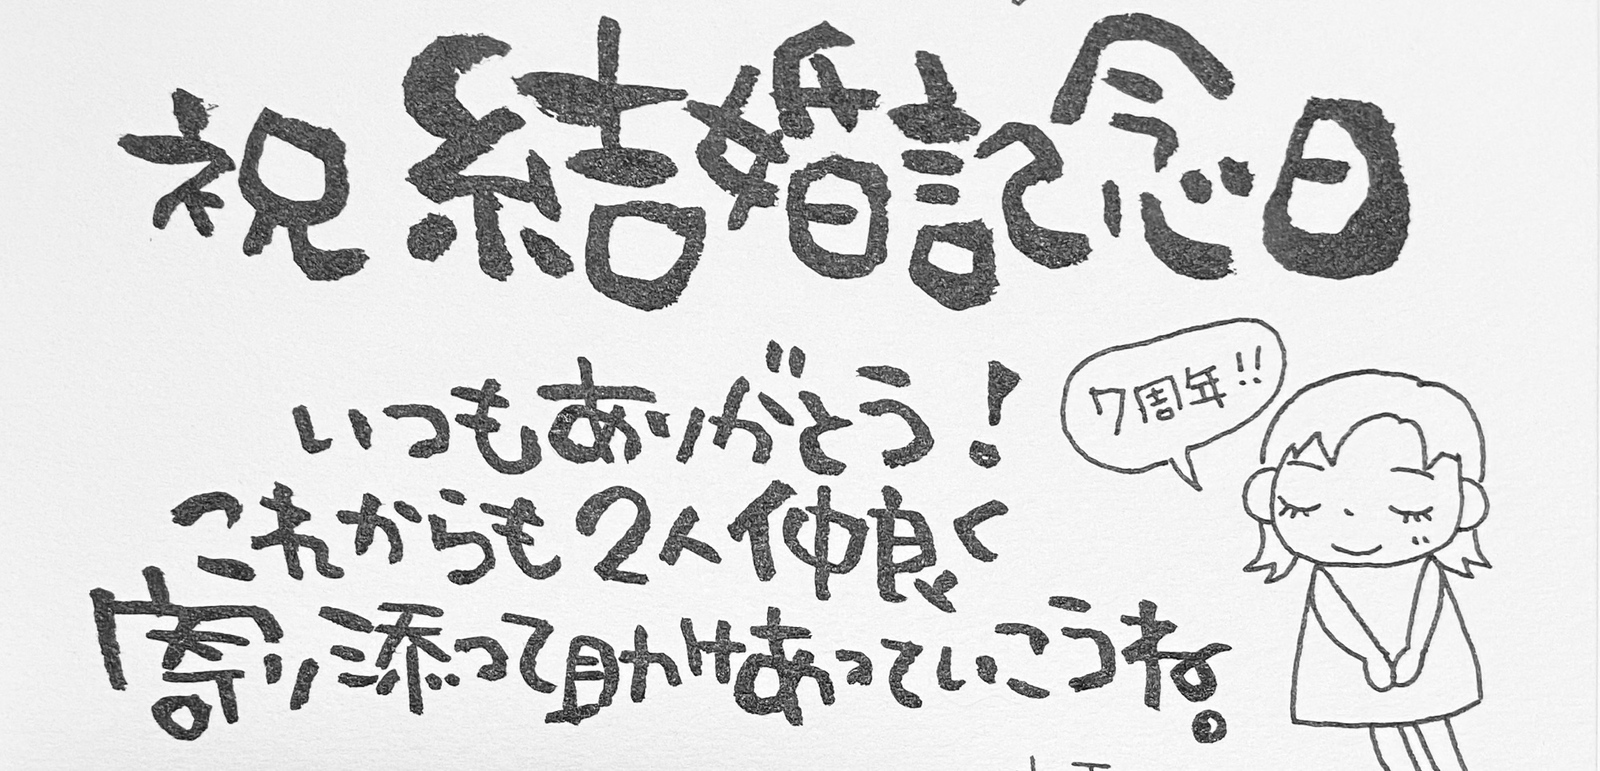 祝 結婚記念日
いつもありがとう!
7周年!!
これからも2人仲良く
寄り添って助けあっていこうね。